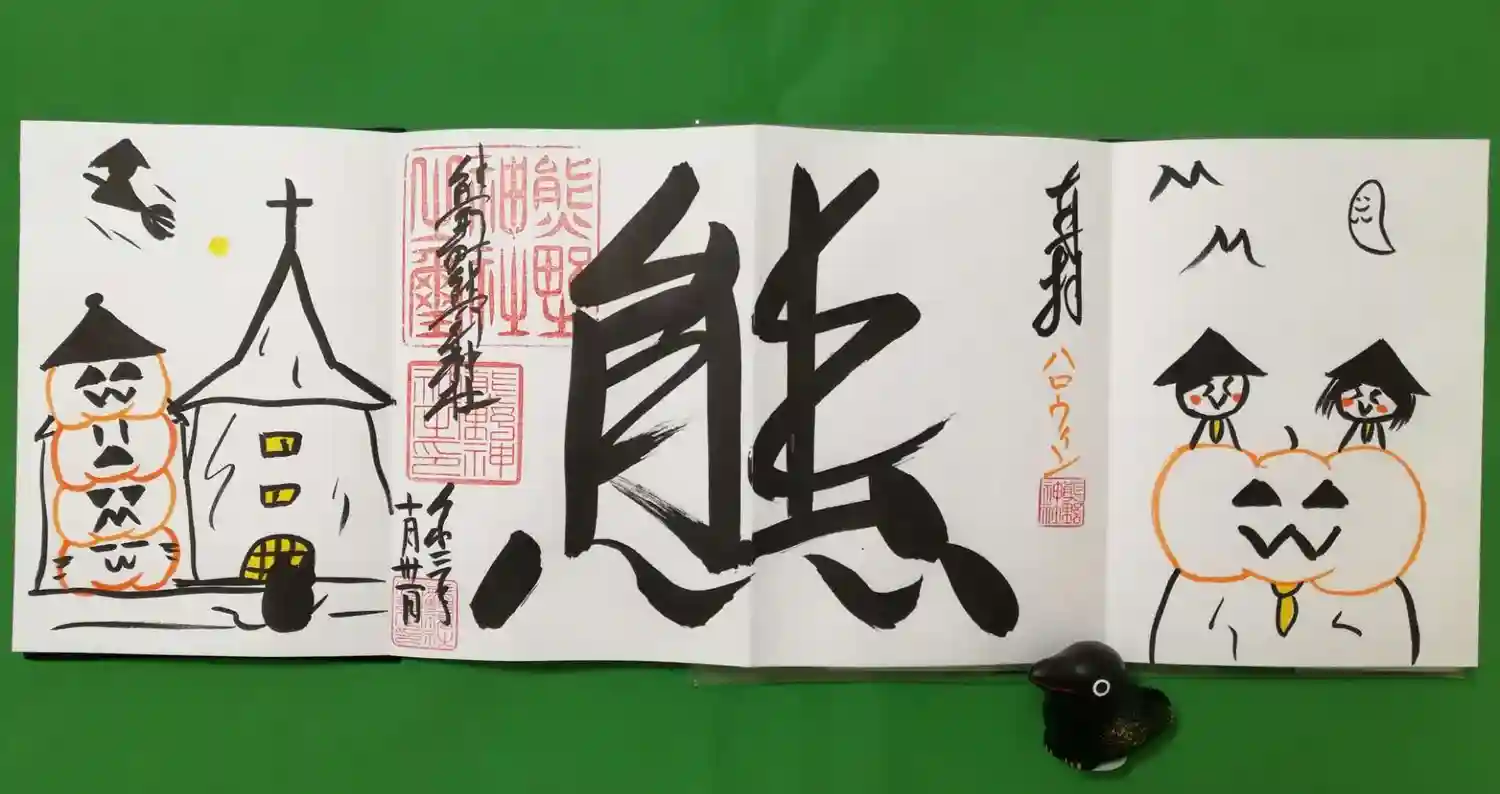 奉拝
ハロウィン
熊野神社
熊
熊野神社之璽
熊野町熊野神社
令和三年
十月